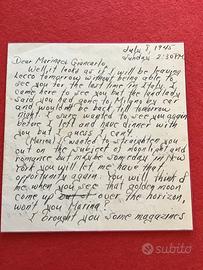 July 8, 1945
Sunday 2:30 PM.
Dear Marinaio Giancarlo,
Well, it looks as if I will be leaving
Lecco tomorrow without being able to
see you for the last time in Italy. I
came here to see you but the landlady
said you had gone to Milano by car
and wouldn't be back till tomorrow
night. I sure wanted to see you again
before I left and have dinner with
you but I guess I can't.
I wanted to straighten you
out on the subject of moonlight and
romance but maybe someday in New
York you will let me have that
opportunity again. You will think of
me when you see that golden moon
come up over the horizon,
won't you Marina?
I brought you some magazines
subito